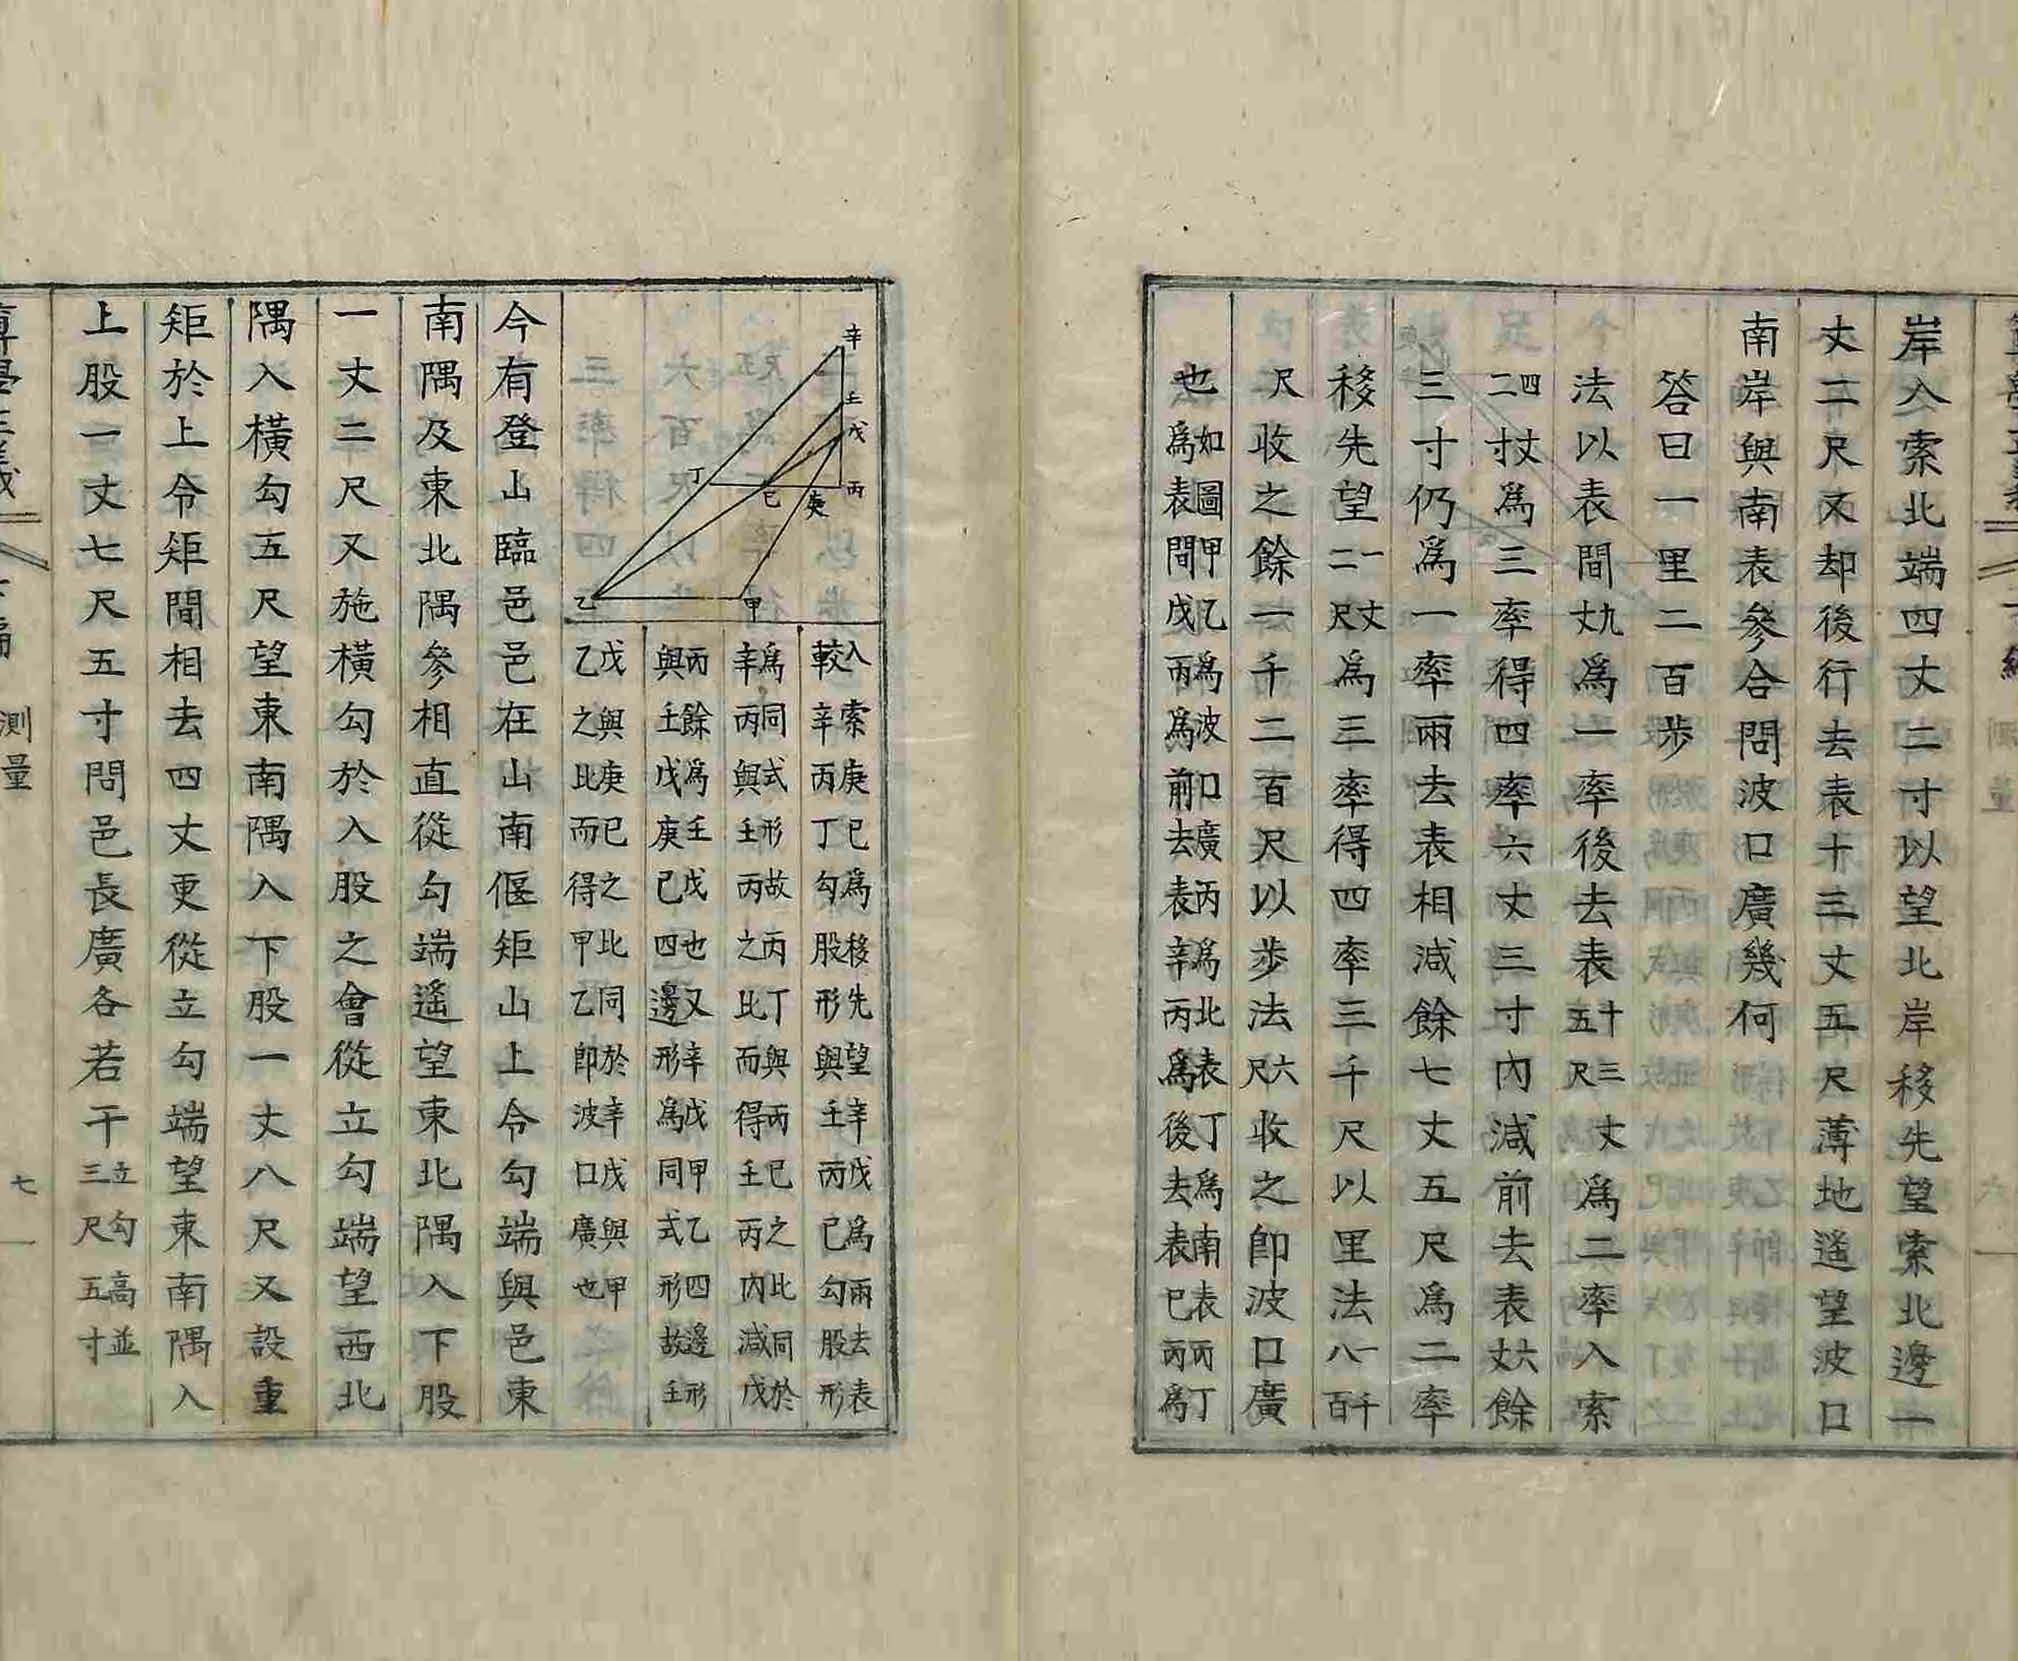 岸入索北端四丈二寸以望北岸移先望索北邊一
丈二尺又却後行去表十三丈五尺薄地遥望波口
南岸與南表參合問波口廣幾何
答曰一里二百步
法以表間九丈爲一率後去表十三丈五尺爲二率入索
四丈二寸爲三率得四率六丈三寸內減前去表六丈餘
三寸仍爲一率兩去表相減餘七丈五尺爲二率
移先望一丈二尺爲三率得四率三千尺以里法一千八百
尺收之餘一千二百尺以步法六尺收之卽波口廣
也如圖甲乙爲波口廣丙爲北表丁爲南表丙丁
爲表間戊丙爲前去表辛丙爲後去表巳丙爲
辛
壬
戊
丙
丁
巳
庚
乙
甲
入索庚巳爲移先望辛戊爲兩去表
較辛丙丁勾股形與壬丙巳勾股形
爲同式形故丙丁與丙巳之比同於
辛丙與壬丙之比而得壬丙內減戊
丙餘爲壬戊也又辛戊甲乙四邊形
與壬戊庚巳四邊形爲同式形故壬
戊與庚巳之比同於辛戊與甲
乙之比而得甲乙卽波口廣也
今有登山臨邑邑在山南偃矩山上令勾端與邑東
南隅及東北隅參相直從勾端遙望東北隅入下股
一丈二尺又施橫勾於入股之會從立勾端望西北
隅入橫勾五尺望東南隅入下股一丈八尺又設重
矩於上令矩間相去四丈更從立勾端望東南隅入
上股一丈七尺五寸問邑長廣各若干立勾高並
三尺五寸
測量
七